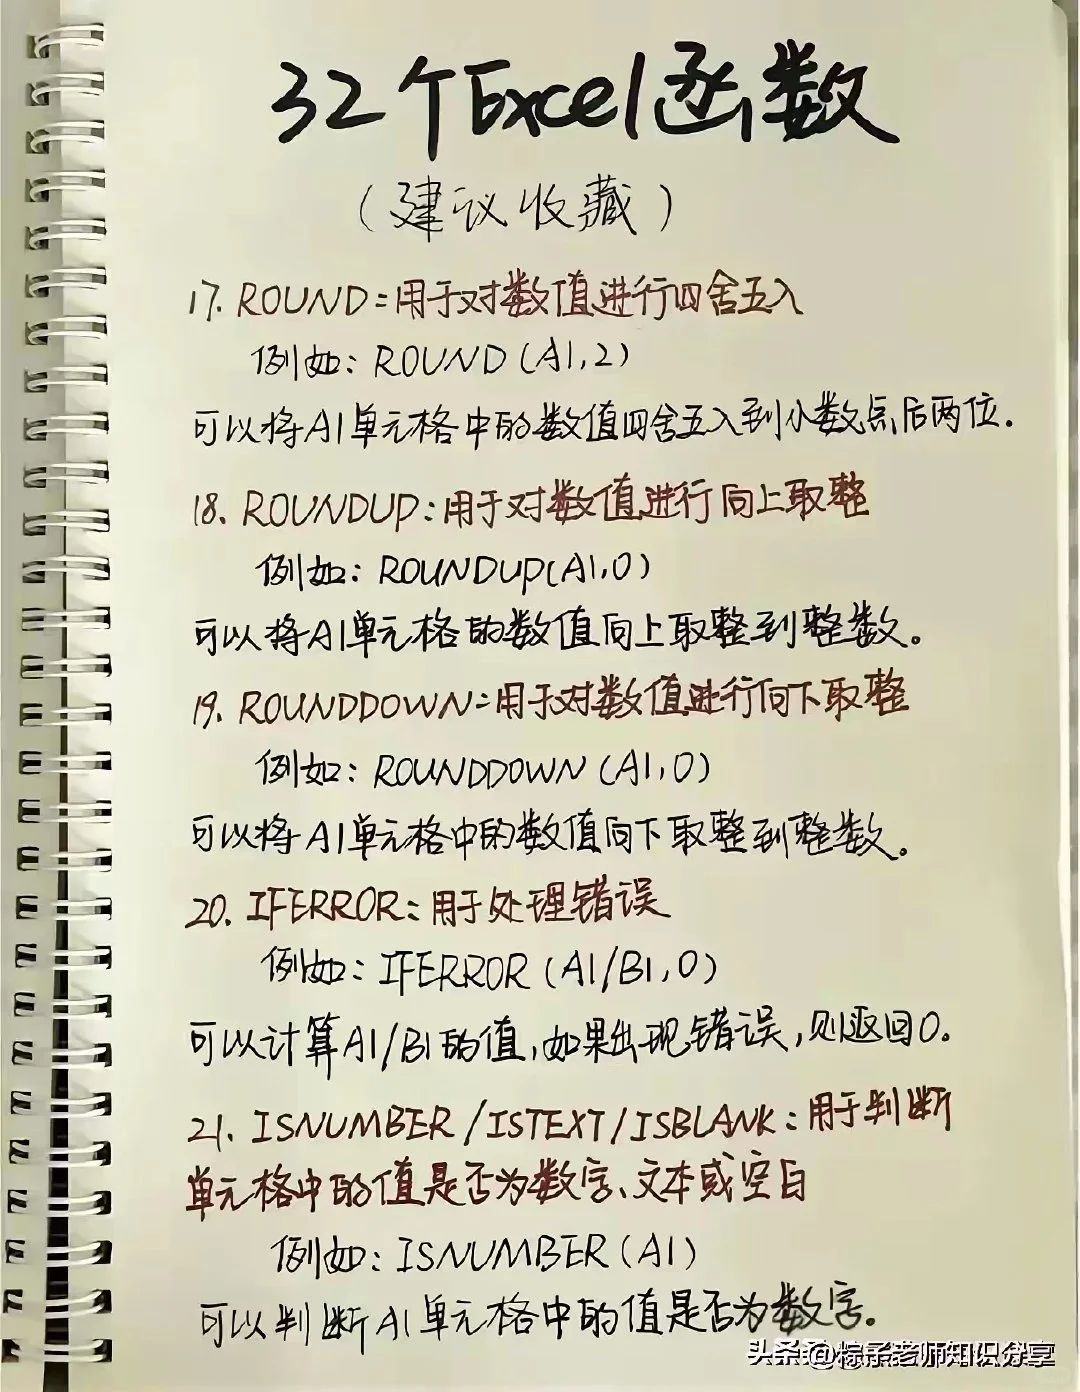 32个Excel函数
(建议收藏)
17. ROUND:用于对数值进行四舍五入
例如:ROUND(A1,2)
可以将A1单元格中的数值四舍五入到小数点后两位.
18. ROUNDUP:用于对数值进行向上取整
例如:ROUNDUP(A1,0)
可以将A1单元格的数值向上取整到整数。
19. ROUNDDOWN:用于对数值进行向下取整
例如:ROUNDDOWN(A1,0)
可以将A1单元格中的数值向下取整到整数。
20. IFERROR:用于处理错误
例如:IFERROR(A1/B1,0)
可以计算A1/B1的值,如果出现错误,则返回0.
21. ISNUMBER/ISTEXT/ISBLANK:用于判断
单元格中的值是否为数字、文本或空白
例如:ISNUMBER(A1)
可以判断A1单元格中的值是否为数字。
头条@粽子老师知识分享